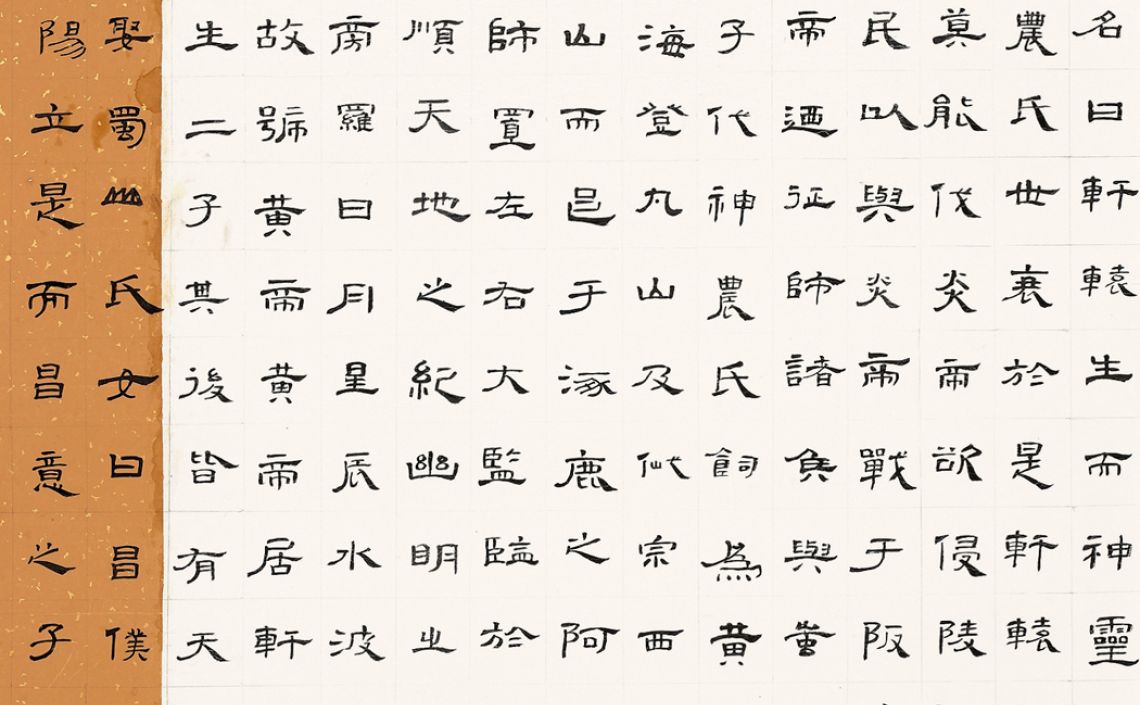 名曰軒轅生而神靈
農氏世衰於是軒轅
莫能伐炎帝欲侵陵
民以與炎帝戰于阪
帝迺征師諸侯與蚩
子代神農氏飼為黃
海登丸山及岱宗西
山而邑于涿鹿之阿
師置左右大監監於
順天地之紀幽明之
旁羅日月星辰水波
故號黃帝黃帝居軒
生二子其後皆有天
娶蜀山氏女曰昌僕
陽立是而昌意之子